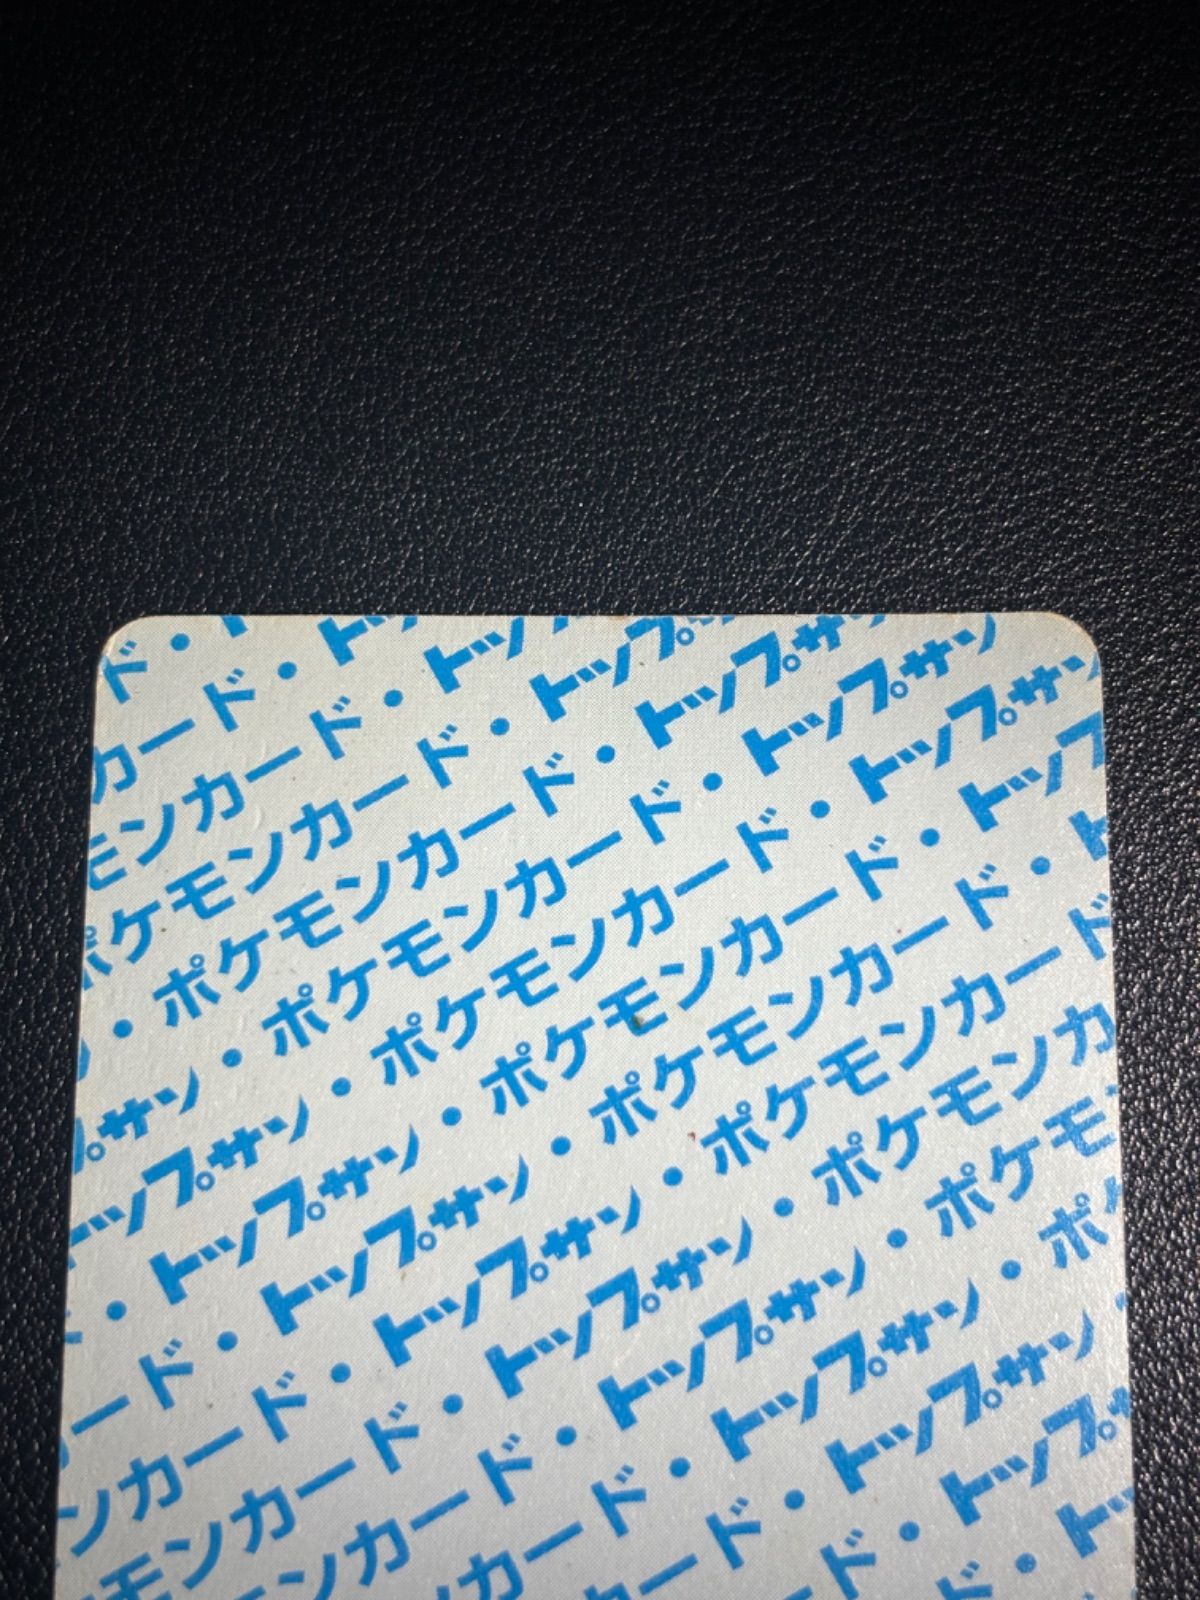 ド・ト
カード・トッ
モンカード・トップ
ポケモンカード・トップサ
・ポケモンカード・トップサン
・ポケモンカード・トップサン
プサン・ポケモンカード・トップサン
トップサン・ポケモンカード・トップ
・トップサン・ポケモンカード・ト
ド・トップサン・ポケモンカード
カード・トップサン・ポケモンカ
ンカード・トップサン・ポケモ
モンカード・トップサン・ポケ
ンカード・トップサン・
カード・トップサン
カード・トップサ
ード・ト